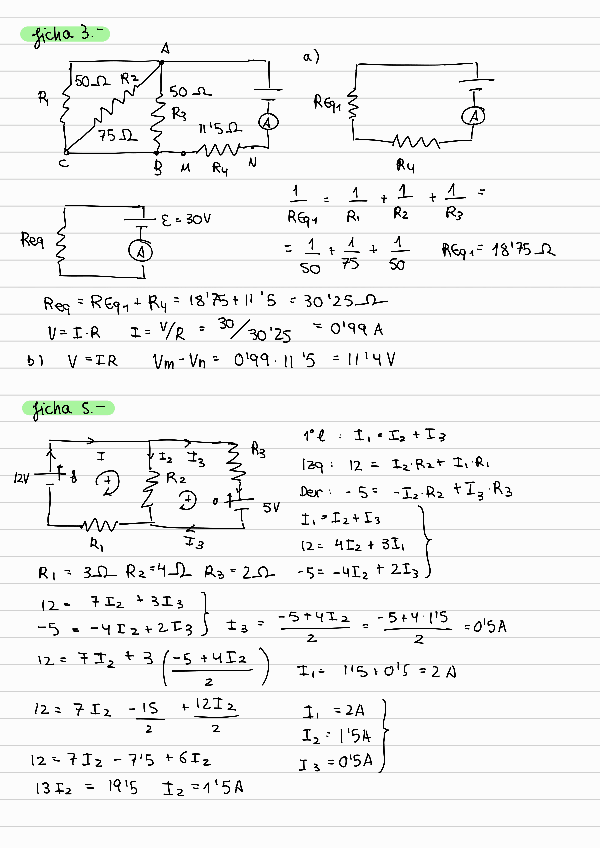 ficha 3.-
A
a)
50Ω R2
R1
50 Ω
R3
75 Ω
11'5 Ω
A
C
B
M
R4
N
REq1
A
R4
Req
ε = 30V
A
1/REq1 = 1/R1 + 1/R2 + 1/R3 =
= 1/50 + 1/75 + 1/50 REq1 = 18'75 Ω
Req = REq1 + R4 = 18'75 + 11'5 = 30'25 Ω
V = I·R I = V/R = 30/30'25 = 0'99 A
b) V = IR Vm - Vn = 0'99 · 11'5 = 11'4 V
ficha 5.-
I
I2
I3
R3
12V
+
R2
+
5V
R1
I3
1ª l : I1 = I2 + I3
Izq : 12 = I2·R2 + I1·R1
Der : -5 = -I2·R2 + I3·R3
I1 = I2 + I3
12 = 4I2 + 3I1
-5 = -4I2 + 2I3
R1 = 3Ω R2 = 4Ω R3 = 2Ω
12 = 7I2 + 3I3
-5 = -4I2 + 2I3
I3 = (-5+4I2)/2 = (-5+4·1'5)/2 = 0'5A
12 = 7I2 + 3 ((-5+4I2)/2)
I1 = 1'5 + 0'5 = 2A
12 = 7I2 -15/2 + 12I2/2
I1 = 2A
I2 = 1'5A
I3 = 0'5A
12 = 7I2 - 7'5 + 6I2
13I2 = 19'5 I2 = 1'5A